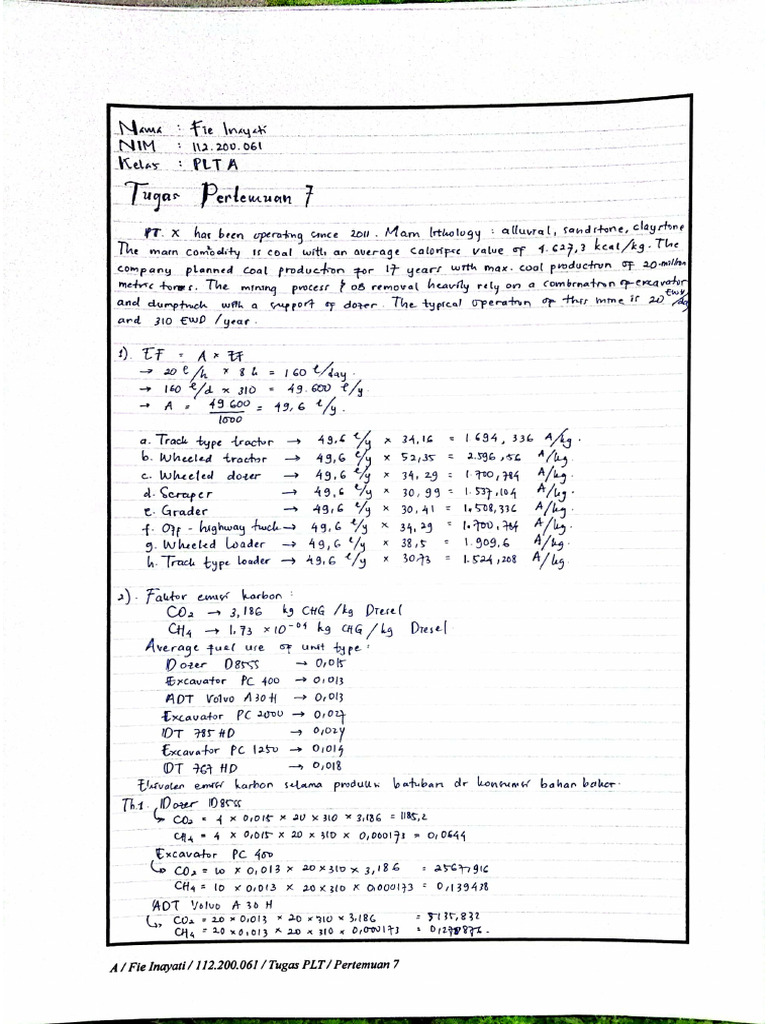 Nama : Fie Inayati
NIM : 112.200.061
Kelas : PLT A
Tugas Pertemuan 7
PT. X has been operating since 2011. Main lithology : alluvial, sandstone, claystone
The main comodity is coal with an average calorific value of 4.627,3 kcal/kg. The
company planned coal production for 17 years with max. coal production of 20 million
metric tones. The mining process & OB removal heavily rely on a combination of excavator
and dumptruck with a support of dozer. The typical operation of this mine is 20 EWH/day
and 310 EWD/year.
1). EF = A × EF
→ 20 l/h × 8 h = 160 l/day.
→ 160 l/d × 310 = 49.600 l/y.
→ A = 49 600 / 1000 = 49,6 l/y.
a. Track type tractor → 49,6 l/y × 34,16 = 1.694,336 A/kg.
b. Wheeled tractor → 49,6 l/y × 52,35 = 2.596,56 A/kg.
c. Wheeled dozer → 49,6 l/y × 34,29 = 1.700,784 A/kg.
d. Scraper → 49,6 l/y × 30,99 = 1.537,104 A/kg.
e. Grader → 49,6 l/y × 30,41 = 1.508,336 A/kg.
f. Off-highway truck → 49,6 l/y × 34,29 = 1.700,784 A/kg.
g. Wheeled Loader → 49,6 l/y × 38,5 = 1.909,6 A/kg.
h. Track type loader → 49,6 l/y × 30.73 = 1.524,208 A/kg.
2). Faktor emisi karbon :
CO2 → 3,186 kg CHG /kg Diesel
CH4 → 1.73 × 10⁻⁰⁴ kg CHG / kg Diesel
Average fuel use of unit type :
Dozer D85SS → 0,015
Excavator PC 400 → 0,013
ADT Volvo A30H → 0,013
Excavator PC 2000 → 0,027
DT 785 HD → 0,024
Excavator PC 1250 → 0,019
DT 767 HD → 0,018
Ekivalen emisi karbon selama produksi batubara dr konsumsi bahan bakar.
Th 1. Dozer D85SS
CO2 = 4 × 0,015 × 20 × 310 × 3,186 = 1185,2
CH4 = 4 × 0,015 × 20 × 310 × 0,000173 = 0,0644
Excavator PC 400
CO2 = 10 × 0,013 × 20 × 310 × 3,186 = 2567,916
CH4 = 10 × 0,013 × 20 × 310 × 0,000173 = 0,139438
ADT Volvo A 30 H
CO2 = 20 × 0,013 × 20 × 310 × 3,186 = 5135,832
CH4 = 20 × 0,013 × 20 × 310 × 0,000173 = 0,278876.
A / Fie Inayati / 112.200.061 / Tugas PLT / Pertemuan 7